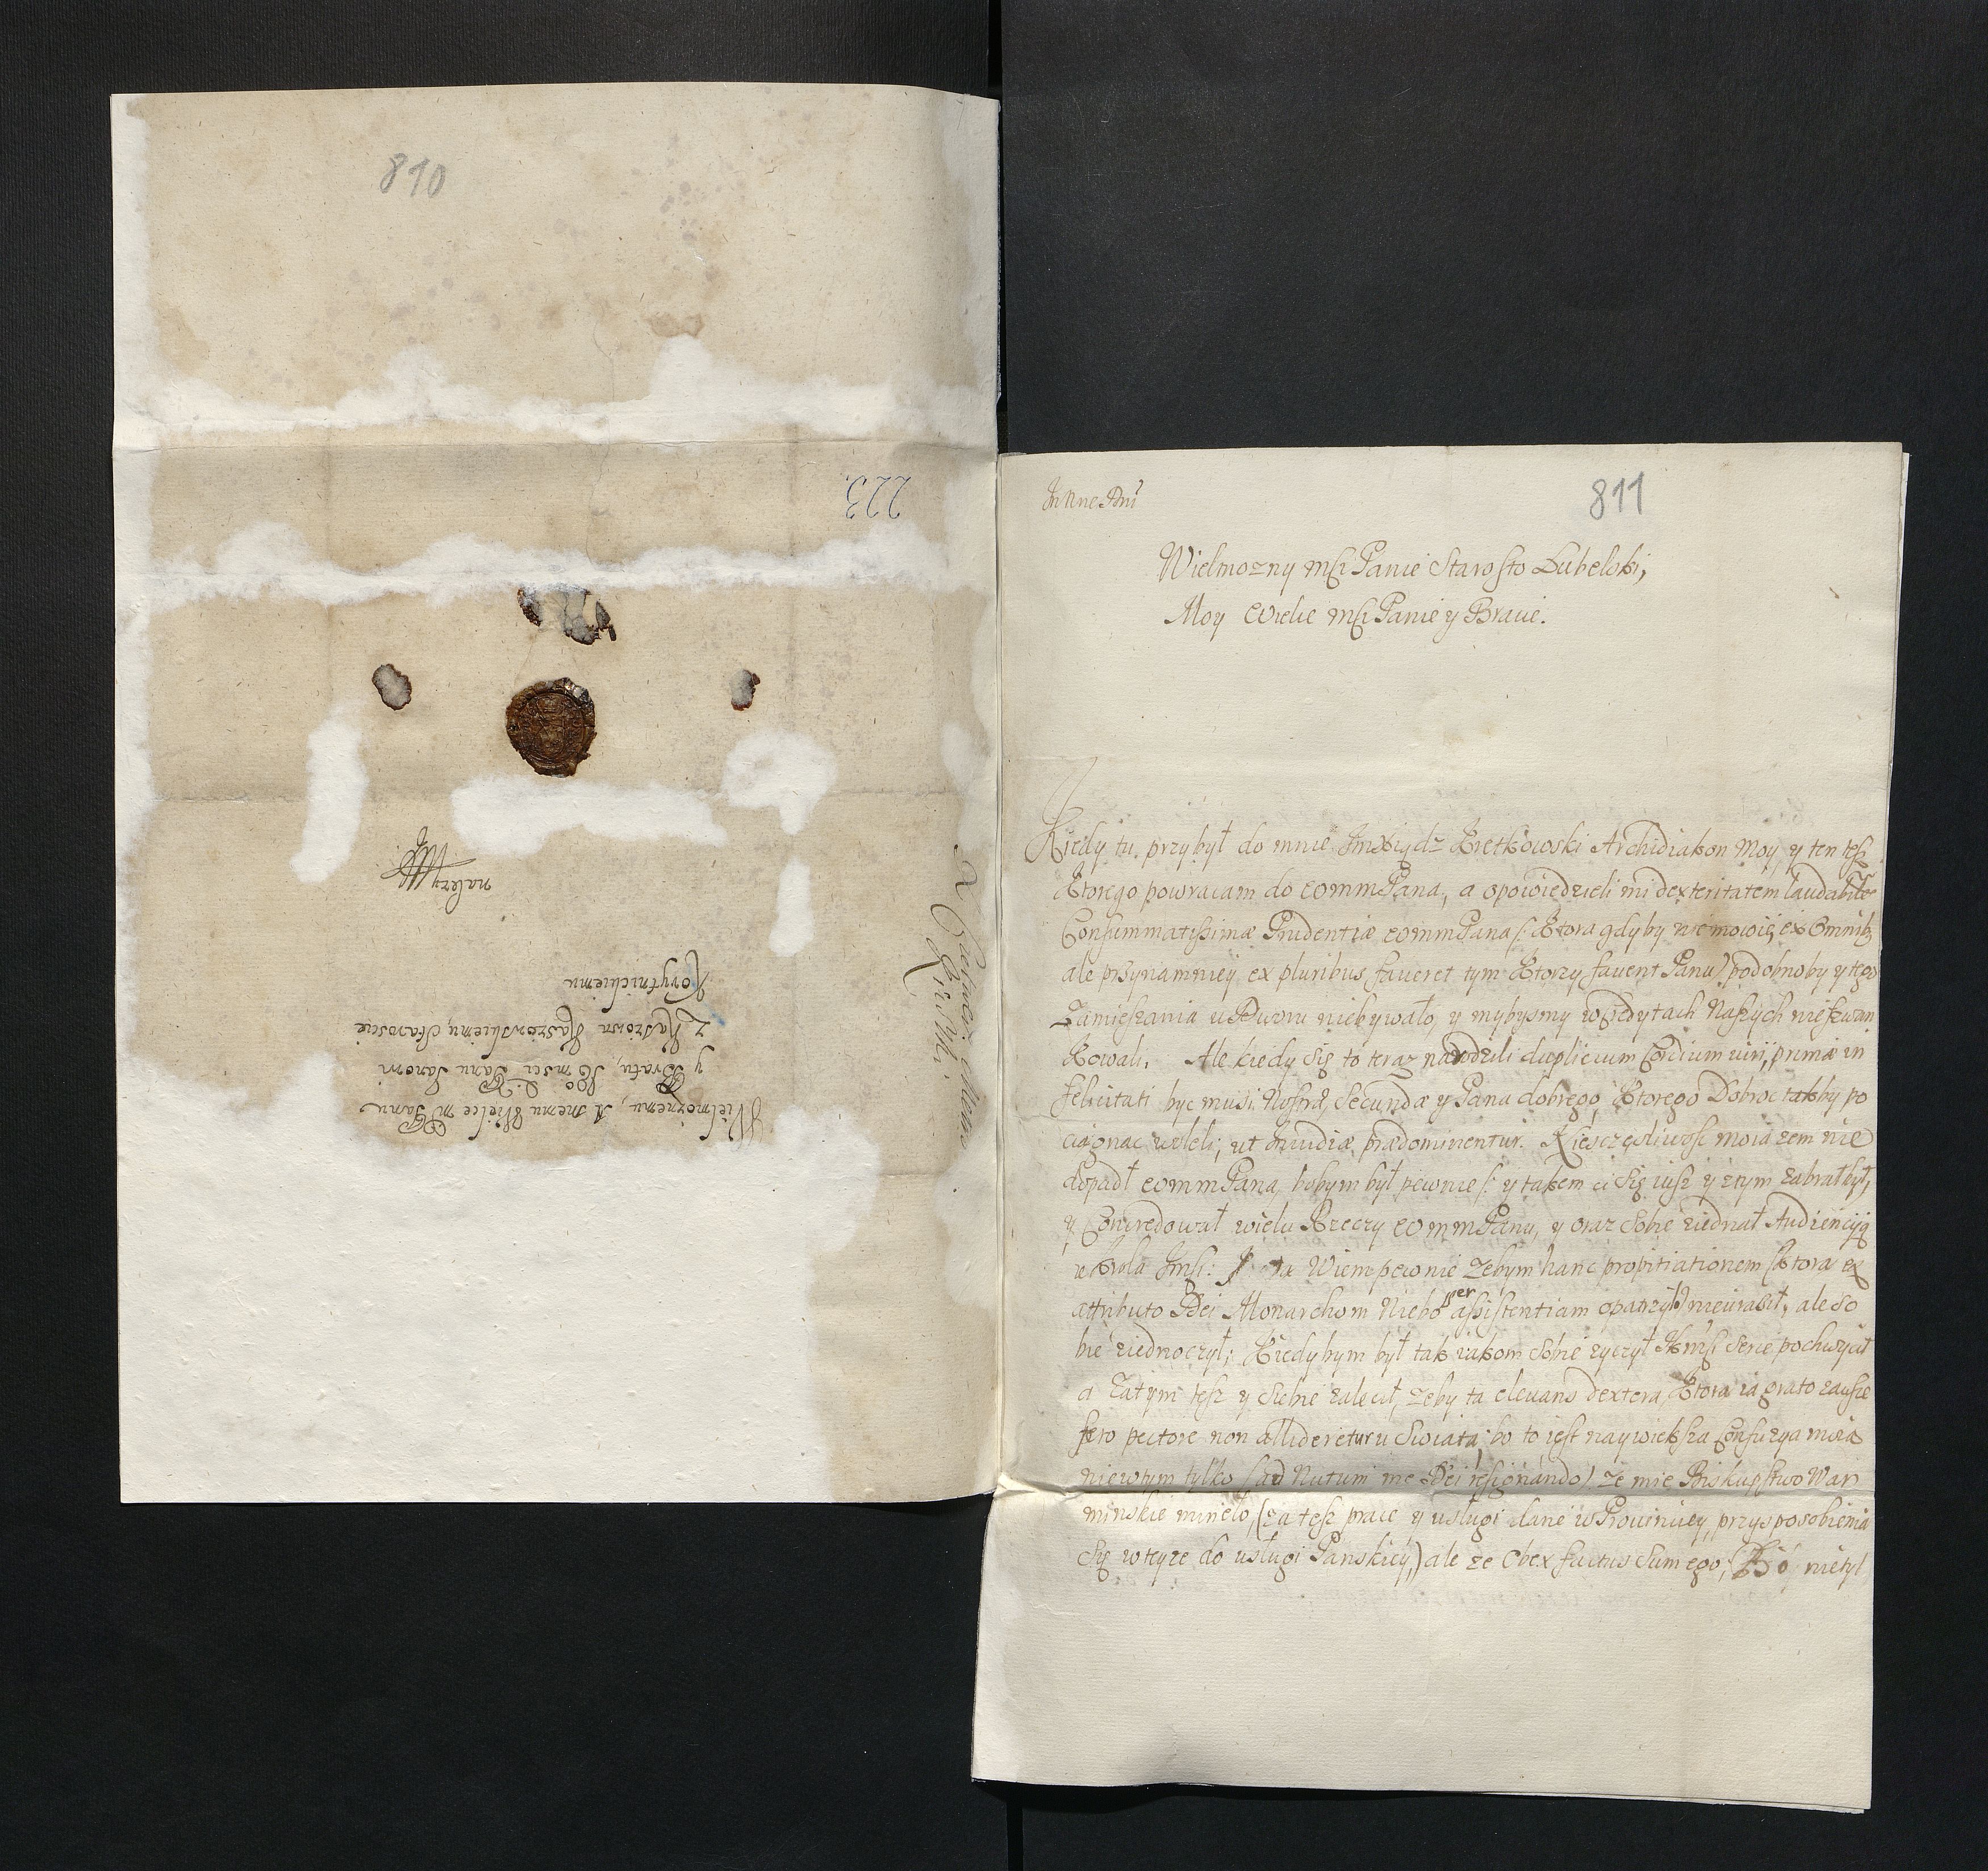 810
223.
Wielmoznemu, A memu Wielce M Panu
y Bratu, Je mosci Panu Janowi
z Raszowa Raszewskiemu staroscie
Korytnickiemu
nalezy
811
In Nne Dni
Wielmozny mści Panie Starosto Lubelski,
Moy Wielce mści Panie y Bracie.
Kiedy tu przybył do mnie Jmxiądz Kretkowski Archidiakon Moy y ten tesz
Ktorego powracam do WmmPana, a opowiedzieli mi dexteritatem laudabile
Consummatissimæ Prudentiæ WmmPana /: Ktora gdyby nie mowię ex Omnibz
ale przynamniey ex pluribus faveret tym Ktorzy favent Panu) podobnoby y tego
Zamieszania u Dworu niebywało, y mybysmy w Credytach Naszych nieszwan
Kowali. Ale kiedy się to teraz narodzili duplicium Cordium viri, primæ in
felicitati byc musi Nostra, Secundæ y Pana dobrego, Ktorego Dobroc takby po
ciagnac woleli, ut Invidiæ prædominentur. Niesczęsliwosc moia zem nie
dopadł WmmPana, bobym był pewnie /: y takem ci się iusz y ztym zabrał był,
y Concredował wielu Rzeczy WmmPanu, y oraz sobie ziednał Audiencyą
u Krola Jmści: Wiem pewnie zebym hanc propitiationem (Ktora ex
attributo Dei Monarchom Niebo per assistentiam opatrzyło) nieuraził, ale so
bie ziednoczył; Kiedybym był tak iakom sobie zyczył Jkmści serce pochwycił
a Zatym tesz y siebie zalecił, zeby ta elevans dextera, Ktora ia grato zawsze
fero pectore non allideretur u swiata; bo to iest naywieksza Confuzya moia
niewtym tylko (ad Nutum me Dei resignando) ze mie Biskupstwo War
minskie mineło, (Za tesz prace y usługi dane w Prowincyey, przysposobienia
się wteyze do usługi Panskiey,) ale ze Obex factus sum ego; Bo nietyl